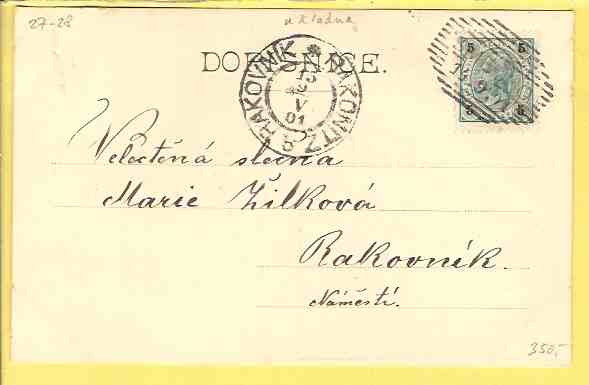 27-28
u Kladna
DOPISNICE.
RAKOVNÍK * RAKONITZ
V
01
5 5
5 5
Velectěná slečna
Marie Žilková
Rakovník.
Náměstí.
350,-